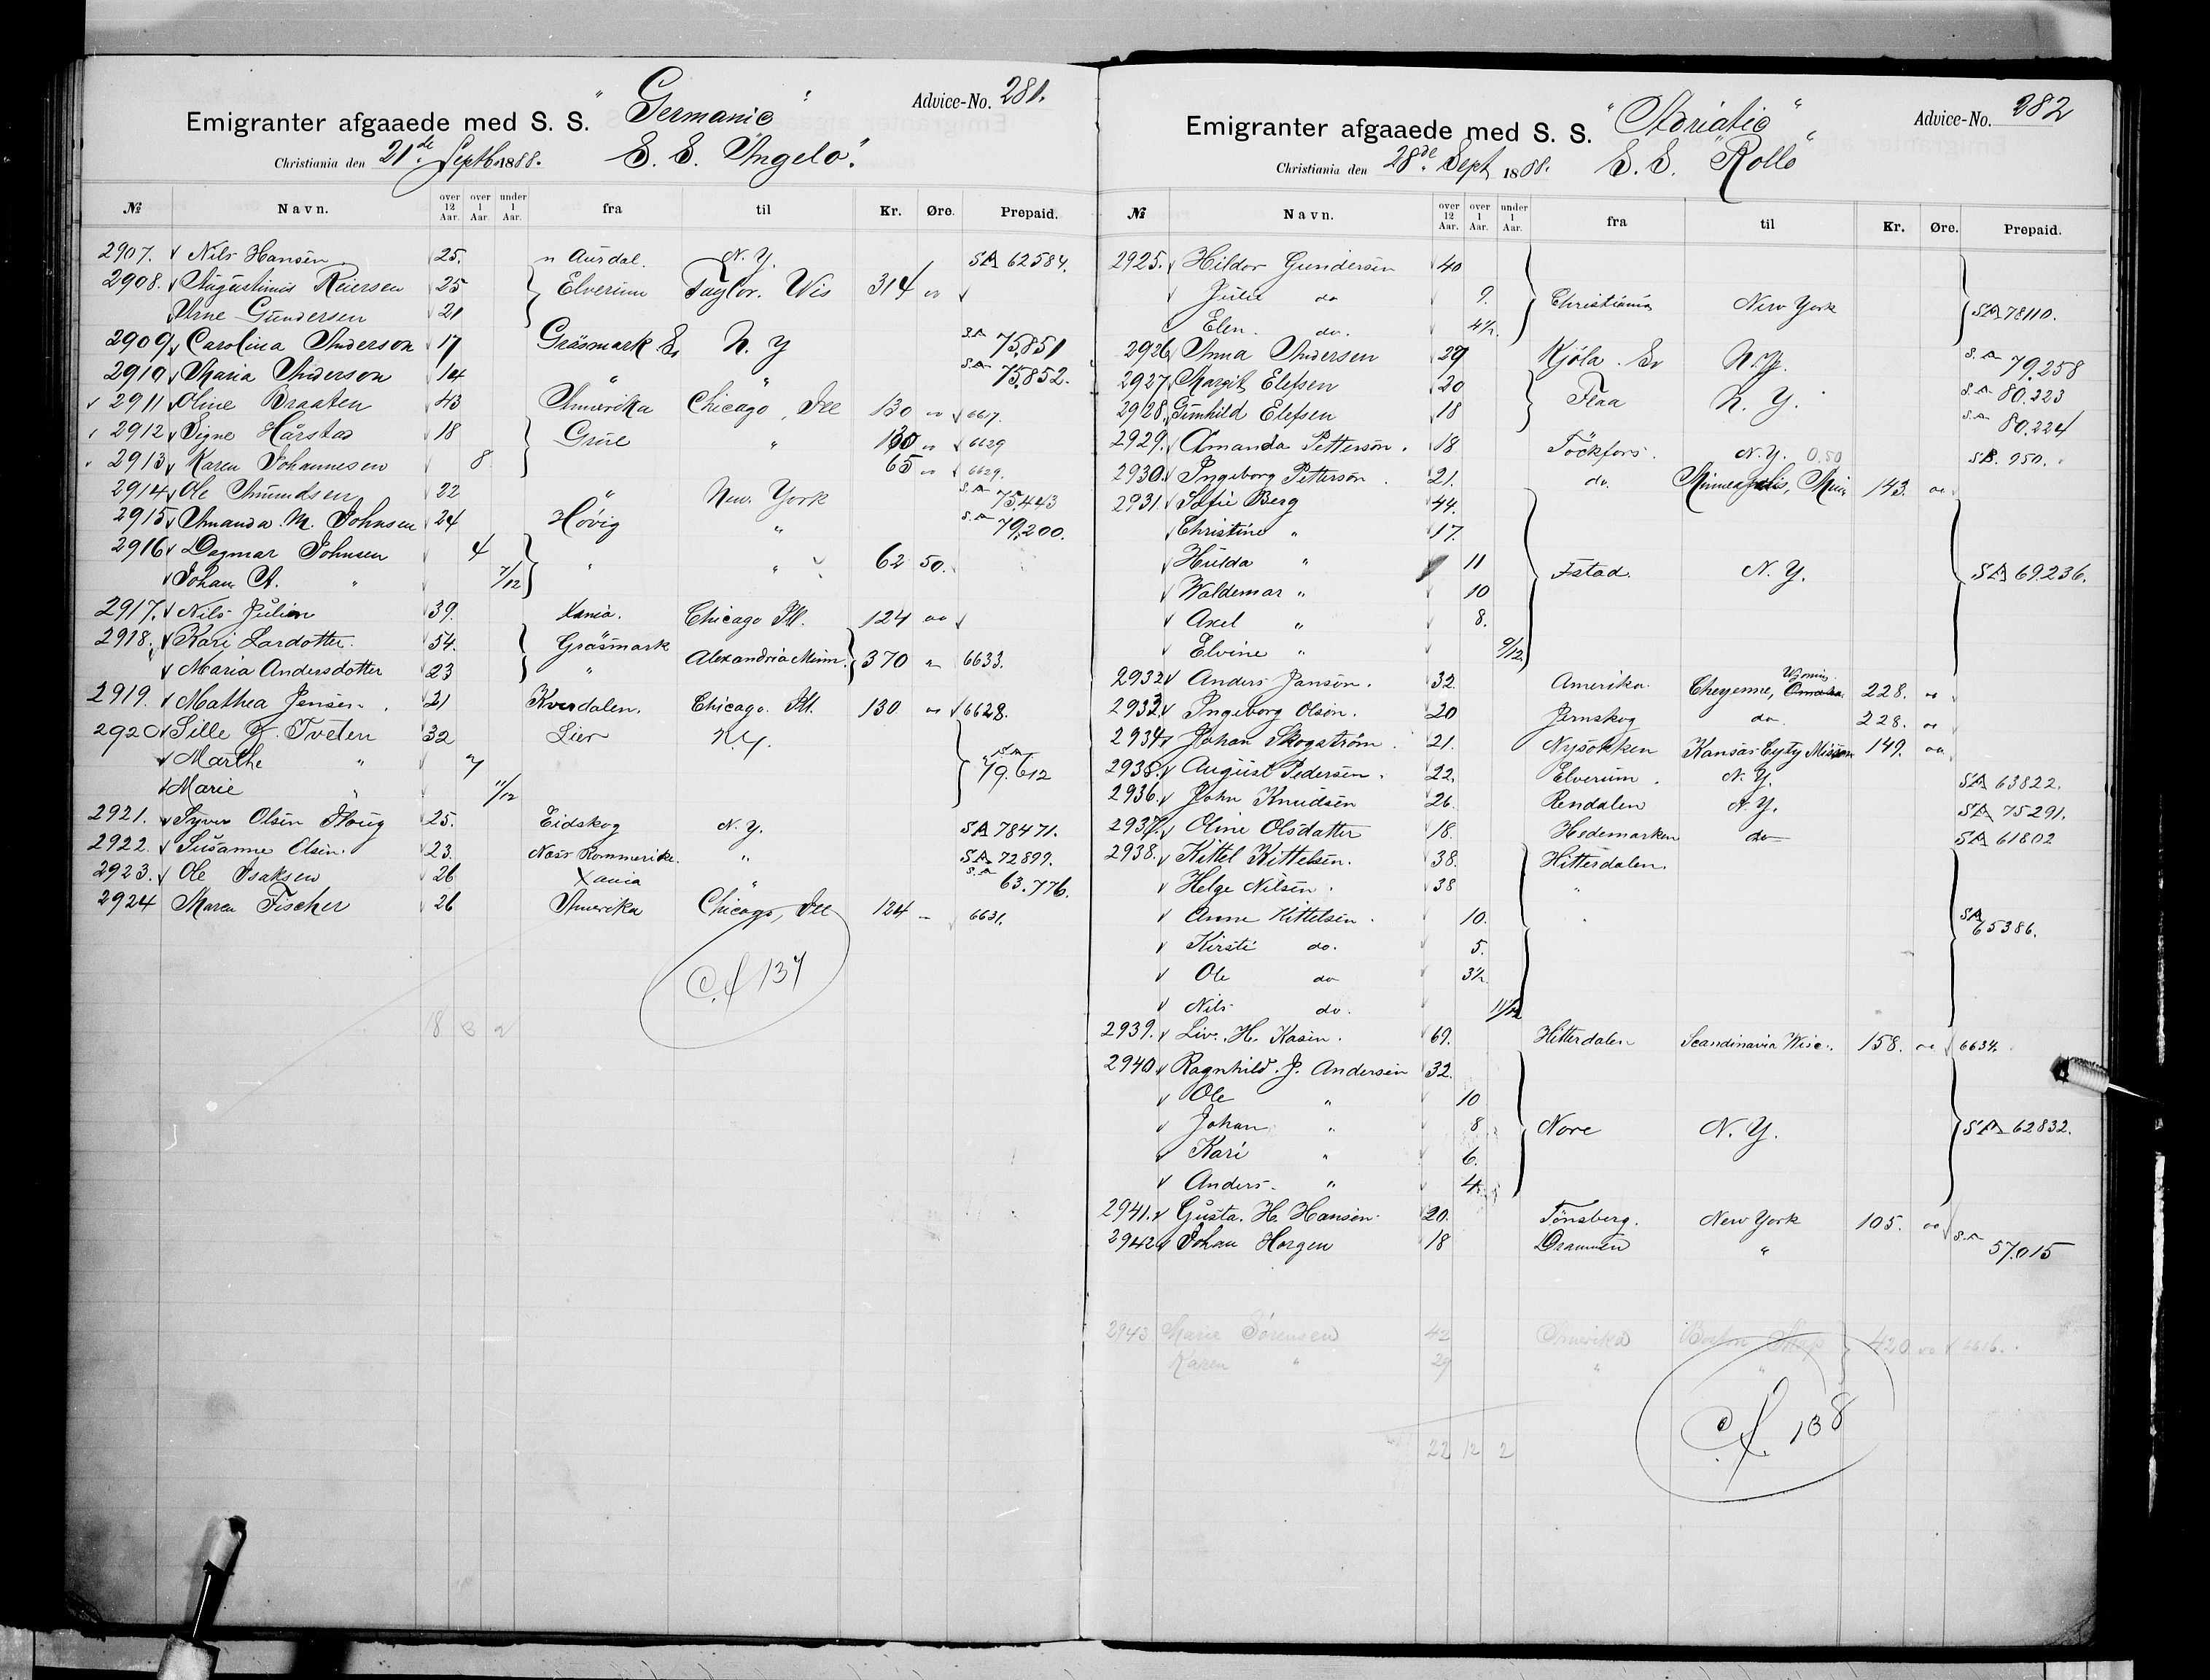 Advice-No. 281.
Emigranter afgaaede med S. S. "Germanic"
Christiania den 21de Septb 1888. S. S. "Angelo".
No Navn. over 12 Aar. over 1 Aar. under 1 Aar. fra til Kr. Øre. Prepaid.
2907. Nils Hansen 25. n Aurdal. N. Y. SA 62584.
2908. Augustinus Reiersen 25 Elverum Taylor. Wis 314 oo
Arne Gundersen 21
2909 Carolina Anderson 17 Gräsmark Sv N. Y SA 75,851
2910 Maria Anderson 14 " " SA 75,852.
2911 Oline Braaten 43 Amerika Chicago, Ill 130 oo 6617.
2912 Signe Hårstad 18 Grue " 130 oo 6629
2913 Karen Johannesen 8 65 oo 6629.
2914 Ole Amundsen 22 " New York SA 75,443
2915 Amanda M. Johnsen 24 Høvig " SA 79,200.
2916 Dagmar Johnsen 4 " " 62 50.
Johan A. " 7/12
2917. Nils Julien 39. Xania. Chicago Ill. 124 oo
2918. Kari Lardotter. 54. Gräsmark Alexandria Minn. 370 " 6633.
Maria Andersdotter 23 "
2919. Mathea Jensen. 21 Kverdalen. Chicago. Ill. 130 oo 6628.
2920 Sille J. Tveten 32 Lier N.Y. SA 79.612
Marthe " 7
Marie " 11/12
2921. Syver Olsen Houg 25. Eidskog N. Y. SA 78471.
2922. Susanne Olsen. 23. Næss Rommerike. " SA 72899.
2923. Ole Isaksen 26 Xania " SA 63.776.
2924 Maren Fischer 26 Amerika Chicago, Ill 124 - 6631.
cf 137
18 3 2
Advice-No. 282
Emigranter afgaaede med S. S. "Adriatic"
Christiania den 28de Sept 1888. S. S. "Rollo"
No Navn. over 12 Aar. over 1 Aar. under 1 Aar. fra til Kr. Øre. Prepaid.
2925. Hildor Gundersen 40
Julie do 9. Christiania New York SA 78110.
Elen. do. 4½.
2926 Anna Andersen 29 Kjöla. Sv N.Y. S.A 79,258
2927 Margit Elefsen 20 Flaa N. Y. S.A 80.223
2928. Gunhild Elefsen 18 S.A 80,224
2929. Amanda Petterson. 18 Töckfors. N.Y. 0.50 SB. 950.
2930. Ingeborg Petterson. 21. do. Minneapolis, Min 143. oo
2931. Sofie Berg 44.
Christine " 17.
Hulda " 11 Fstad. N. Y. SA 69236.
Waldemar " 10
Axel " 8.
Elvine " 9/12
2932 Anders Jansen. 32. Amerika. Cheyenne, Omaha Wyomin. 228. oo
2933. Ingeborg Olsen. 20 Jernskog do. 228. oo
2934 Johan Skogström. 21. Nysokken Kansas Cyty Misson 149. oo
2935. August Pedersen. 22. Elverum. N. Y. SA 63822.
2936. John Knudsen 26. Rendalen N. Y. SA 75291.
2937. Oline Olsdatter 18. Hedemarken do SA 61802
2938. Kittel Kittelsen. 38. Hitterdalen.
Helge Nilsen. 38 "
Anne Kittelsen. 10. " SA 65386.
Kirsti do. 5.
Ole do 3½.
Nils do. 11/12
2939. Liv. H. Kasin. 69. Hitterdalen Scandinavia Wisc. 158. oo 6634.
2940 Ragnhild. J. Andersen 32.
Ole " 10
Johan " 8 Nore N. Y. SA 62832.
Kari " 6.
Anders. " 4.
2941. Gusta. H. Hansen. 20. Tönsberg. New York 105. oo
2942 Johan Horgen 18 Drammen " S.A 57.015
2943 Marie Sørensen 42 Amerika Boston 420 oo 6616.
Karen " 29 " "
cf. 138
22 12 2